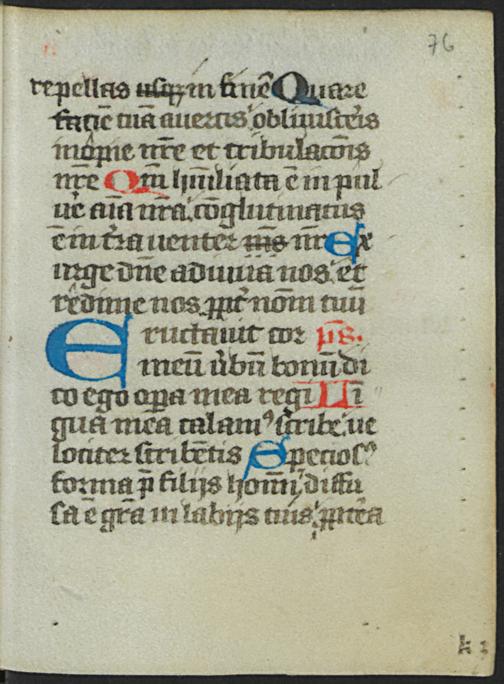 76
repellas usq; in finē Quare
faciē tuā auertis obliuisceris
inopie nr̄e et tribulacōis
nr̄e Qm̄ hūiliata ē in pul
ue aīa nr̄a, cōglutinatus
ē in t̄ra uenter nr̄ Ex
urge dn̄e adiuua nos, et
redime nos ꝓpt̾ nom̄ tuū
Eructauit cor ps̄.
meū ūbū bonū di
co ego oꝑa mea regi Li
gua mea calamꝰ scribe, ue
lociter scribētis Speciosꝰ
forma p̄ filijs hoīm, diffu
sa ē gr̄a in labijs tuis, ꝓpt̾ea